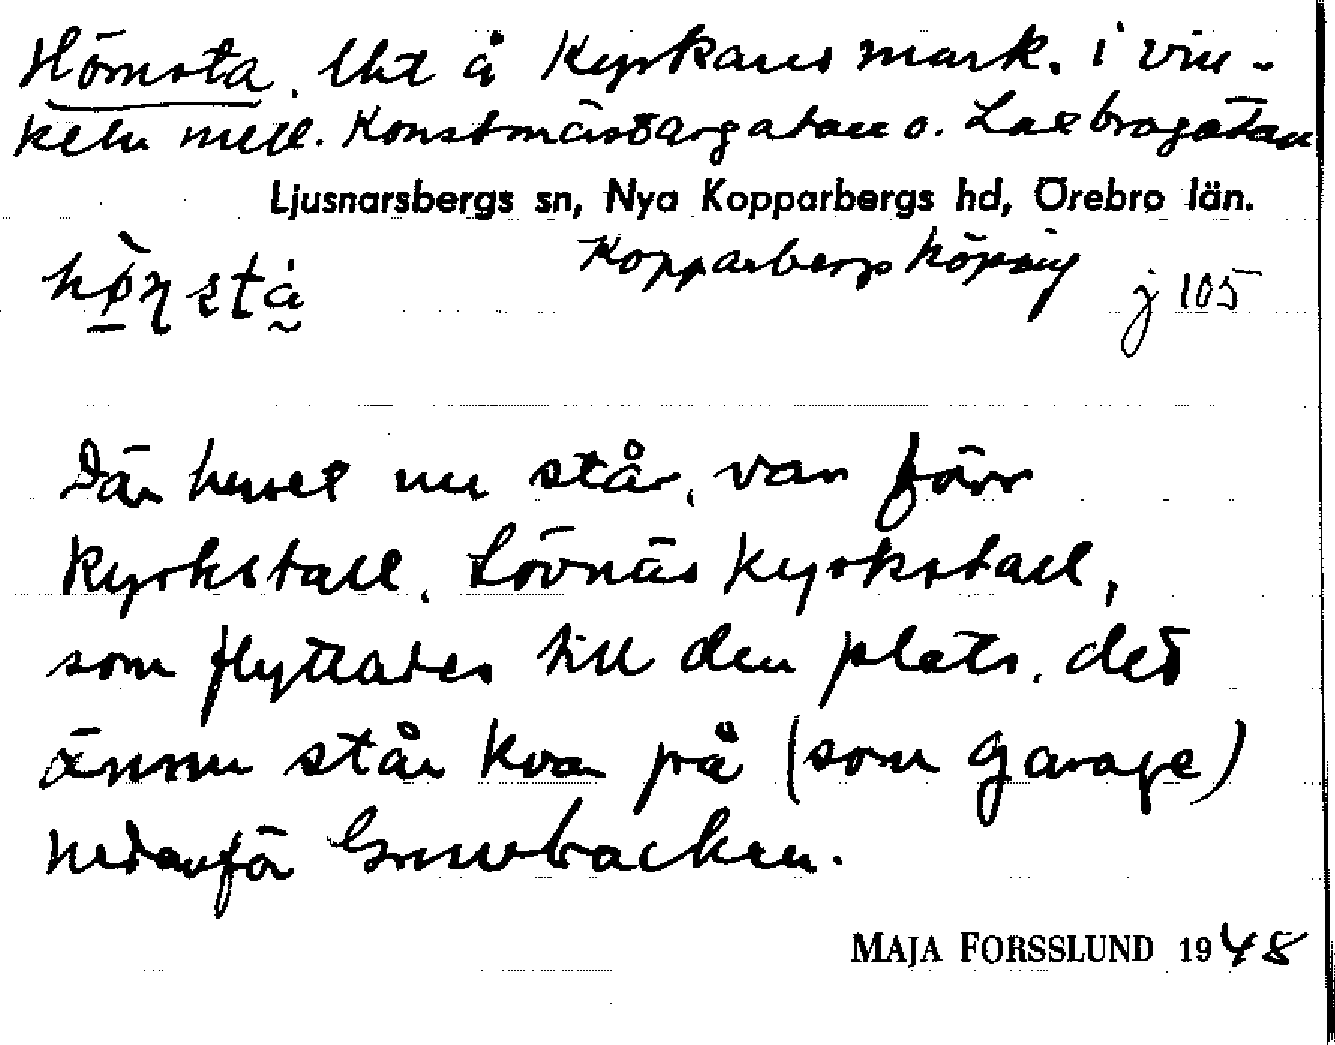 Hörnsta. Lht å Kyrkans mark. i vin-
keln mell. Konstmästargatan o. Laxbrogatan
Ljusnarsbergs sn, Nya Kopparbergs hd, Örebro län.
Kopparbergs köping j 105
Där huset nu står, var förr
kyrkstall. Lövnäs kyrkstall,
som flyttades till den plats, det
ännu står kvar på (som garage)
nedanför Gruvbacken.
MAJA FORSSLUND 1948